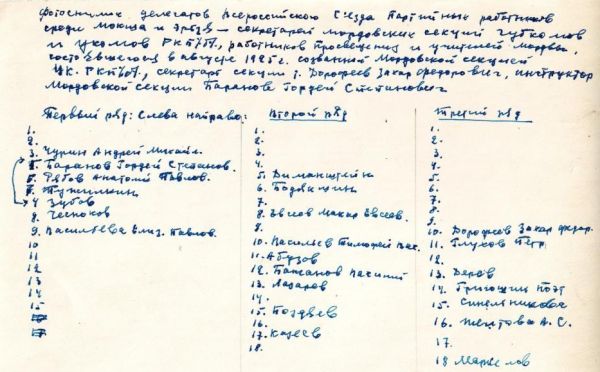 Фотоснимок делегатов Всероссийского Съезда Партийных работников
среди Мокша и Эрзя – секретарей мордовских секций губкомов
и укомов РКП/б/, работников просвещения и учителей мордвы,
состоявшегося в августе 1925 г. созванной Мордовской секцией
ЦК. РКП/б/, секретарь секции т. Дорофеев Захар Федорович, инструктор
Мордовской секции Баранов Гордей Степанович
Первый ряд: Слева направо:
1.
2.
3. Чурин Андрей Михайл.
Баранов Гордей Степанов.
5. Рябов Анатолий Павлов.
6. Тужилкин
4 Зубов
8. Чесноков
9. Васильева Елиз. Павлов.
10
11
12
13
14
15
Второй ряд
1.
2.
3.
4.
5. Диманштейн
6. Бодякшин
7.
8. Евсеев Макар Евсеев.
9.
10. Васильев Тимофей Вас.
11. Абузов
12. Бажанов
13. Лазарев
14.
15. Поздяев
16.
17. Кареев
18.
Третий ряд
1.
2.
3.
4
5.
6.
7.
8.
9.
10. Дорофеев Захар Федор.
11. Глухов Петр
12.
13. Деров
14. Григошин Поэт
15. Синельникова
16. А. С.
17.
18